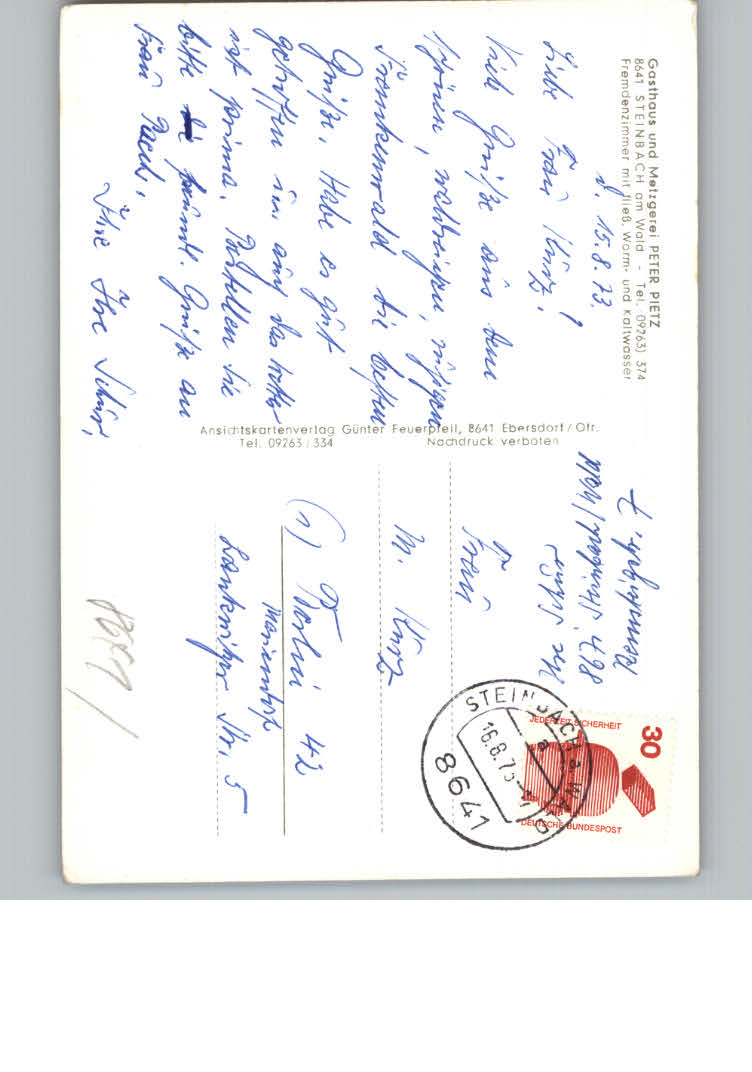 Gasthaus und Metzgerei PETER PIETZ
8641 STEINBACH am Wald - Tel. 09263) 374
Fremdenzimmer mit fließ. Warm- und Kaltwasser
d. 15.8.73.
Liebe Frau Kurz!
Viele Grüße aus dem
schönen, waldreichen,
Frankenwald die besten
Grüße. Habe es gut
getroffen u. auch das Wetter
ist prima. Bestellen Sie
bitte freundl. Grüße an
Frau
Ihre
Ansichtskartenverlag Günter Feuerpfeil, 8641 Ebersdorf/Ofr.
Tel. 09263/334 Nachdruck verboten
8641 Steinbach/Wald
Frau
M. Kurz
(1) Berlin 42
Mariendorf
Lankwitzer Str. 5
30
JEDERZEIT SICHERHEIT
DEUTSCHE BUNDESPOST
STEINBACH a WALD
a
16.8.73
8641